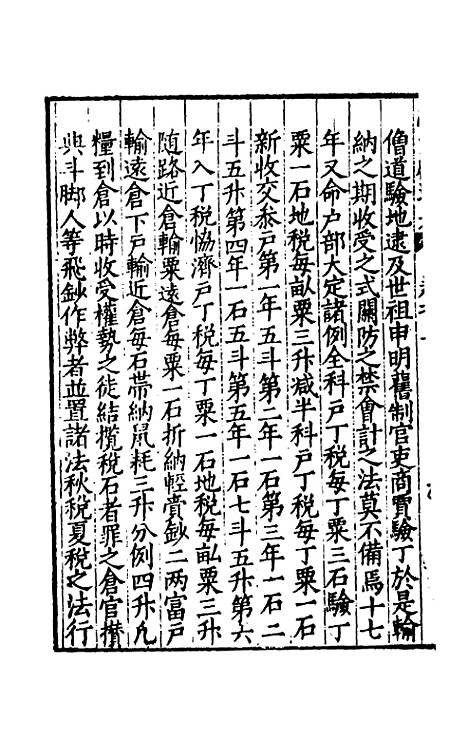 僧道驗地逮及世祖申明舊制官吏商賈驗丁於是輸
納之期收受之式關防之禁會計之法莫不備焉十七
年又命戶部大定諸例全科戶丁稅每丁粟三石驗丁
粟一石地稅每畝粟三升減半科戶丁稅每丁粟一石
新收交叅戶第一年五斗第二年一石第三年一石二
斗五升第四年一石五斗第五年一石七斗五升第六
年入丁稅恊濟戶丁稅每丁粟一石地稅每畝粟三升
隨路近倉輸粟遠倉每粟一石折納輕賫鈔二两富戶
輸遠倉下戶輸近倉每石帯納鼠耗三升分例四升凢
糧到倉以時收受權勢之徒結攬稅石者罪之倉官攅
典斗脚人等飛鈔作弊者並置諸法秋稅夏稅之法行